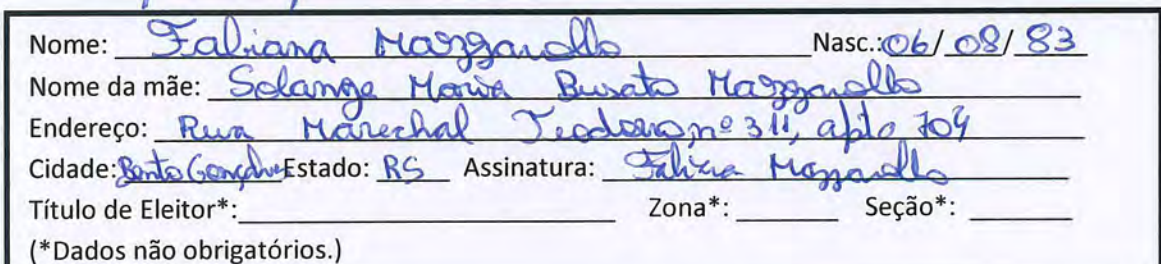 Nome: Fabiana Mazzarollo Nasc.: 06/ 08/ 83
Nome da mãe: Solange Maria Busato Mazzarollo
Endereço: Rua Marechal Teodoro, nº 311, apto 704
Cidade: Bento Gonçalves Estado: RS Assinatura: Fabiana Mazzarollo
Título de Eleitor*: Zona*: Seção*:
(*Dados não obrigatórios.)